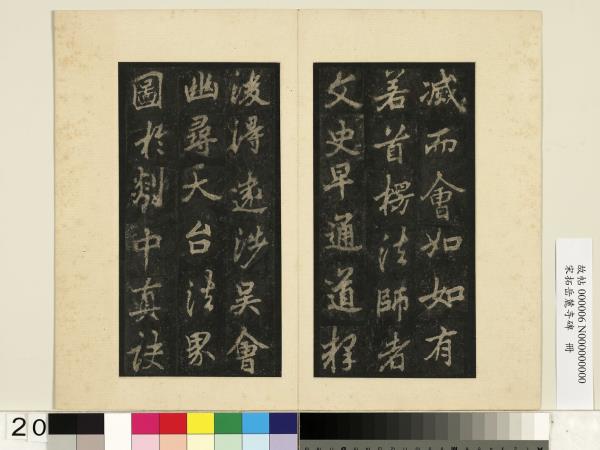 滅而會如如有
若首楞法師者
文史早通道釋
後得遠涉吳會
幽尋天台法界
圖於剡中真訣
故帖 000006 N000000000
宋拓岳麓寺碑 冊
20